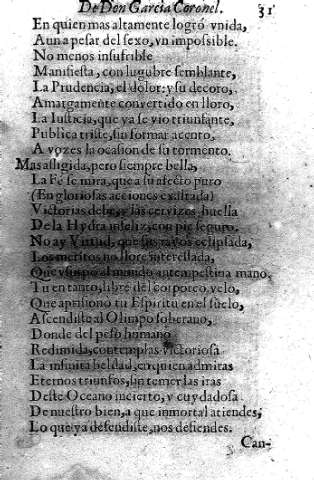 De Don Garcia Coronel. 31
En quien mas altamente logró vnida,
Aun a pesar del sexo, vn impossible.
No menos insufrible
Manifiesta, con lugubre semblante,
La Prudencia, el dolor: y su decoro,
Amargamente convertido en lloro,
La Iusticia, que ya se vio triunfante,
Publica triste, sin formar acento,
A vozes la ocasion de su tormento.
Mas afligida, pero siempre bella,
La Fè se mira, que a su afecto puro
(En gloriosas acciones exaltada)
Victorias debe, y las cervizes huella
De la Hydra infeliz, con pie seguro.
No ay Virtud, que sus rayos eclipsada,
Los meritos no llore interessada,
Que vsurpò al mundo intempestiva mano,
Tu en tanto, libre del corporeo velo,
Que aprisionò tu Espiritu en el suelo,
Ascendiste al Olimpo soberano,
Donde del peso humano
Redimida, contemplas victoriosa
La infinita beldad, en quien admiras
Eternos triunfos, sin temer las iras
Deste Oceano incierto, y cuydadosa
De nuestro bien, a que inmortal atiendes,
Lo que ya defendiste, nos defiendes.
Can-